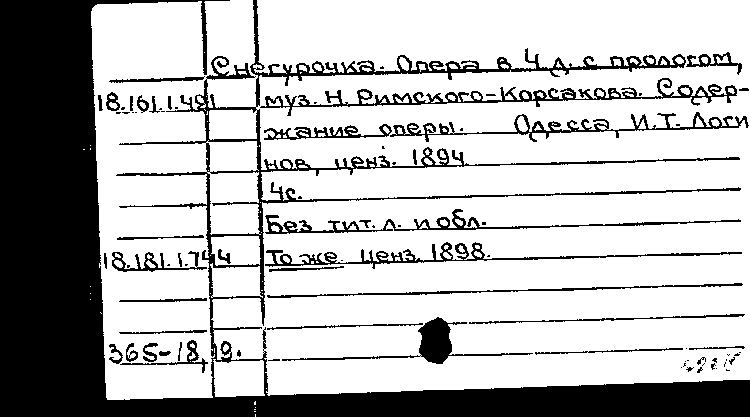 Снегурочка. Опера в 4 д. с прологом,
18.161.1.491 муз. Н. Римского-Корсакова. Содер-
жание оперы. Одесса, И.Т. Логи
нов, ценз. 1894
4с.
Без тит. л. и обл.
18.181.1.744 То же ценз. 1898.
365-18,19.